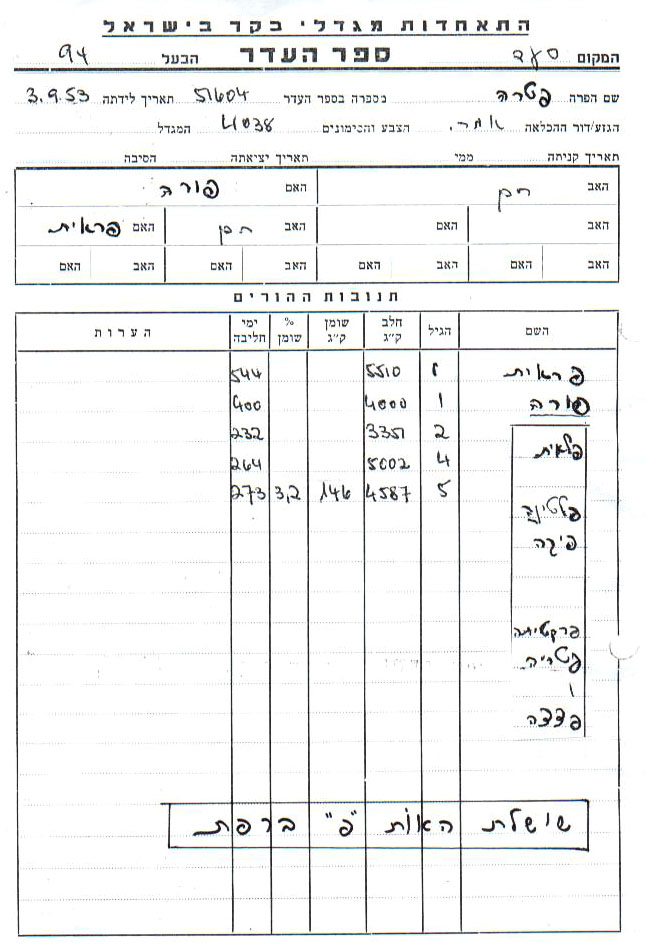 התאחדות מגדלי בקר בישראל
ספר העדר
המקום סעד הבעל 94
שם הפרה פטרה מספרה בספר העדר 51604 תאריך לידתה 3.9.53
הגזע/דור ההכלאה הצבע והסימונים 4038 המגדל
תאריך קניתה ממי תאריך יציאתה הסיבה
האב חנן האם פורה
האב האם האב חנן האם פראית
האב האם האב האם האב האם האב האם
תנובות ההורים
השם הגיל חלב ק״ג שומן ק״ג % שומן ימי חליבה הערות
פראית 5510 544
פורה 1 4000 400
2 3351 232
פלאית
4 5002 264
5 4587 146 3,2 273
פלטינה
פיקה
פרקטיה
פטריה
ו
פצצה
שושלת האות "פ" ברפת